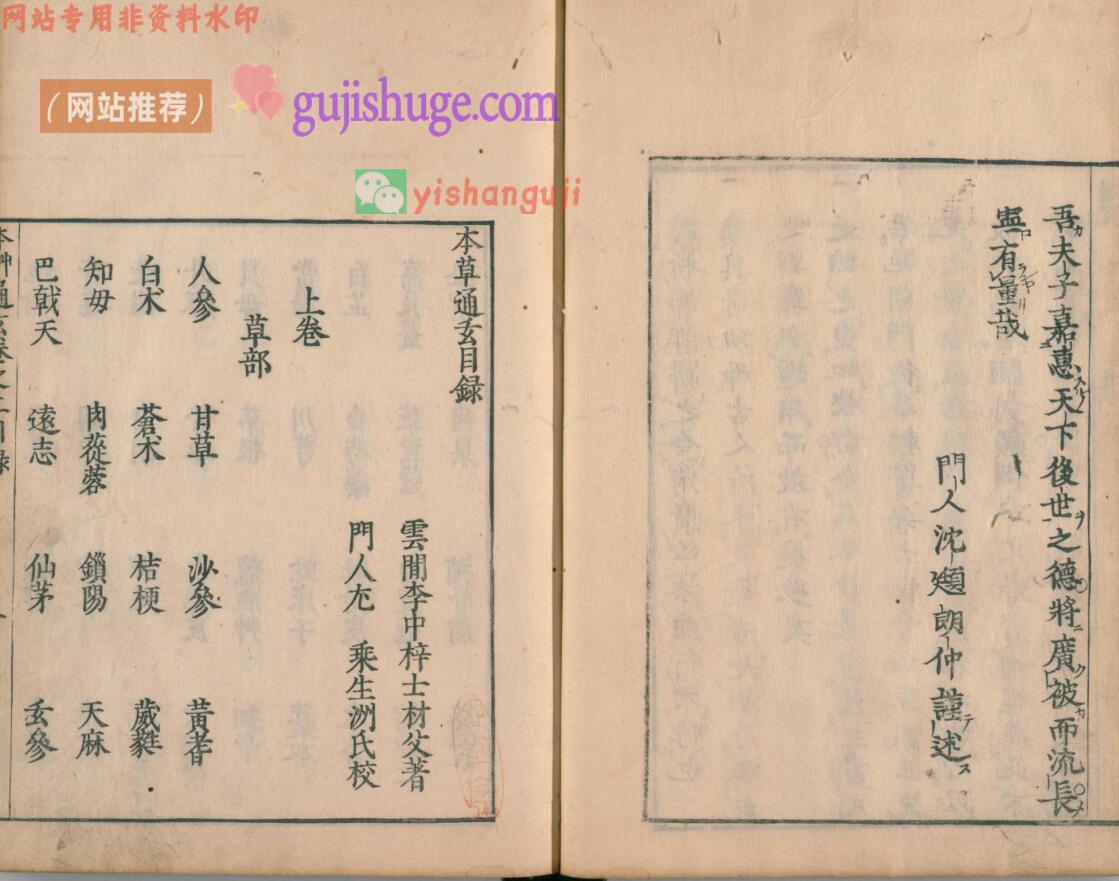 网站专用非资料水印
（网站推荐）
gujishuge.com
yishanguji
吾夫子嘉惠天下後世之德將廣被而流長
寧有量哉
門人沈頲朗仲謹述
本草通玄目録
雲間李中梓士材父著
門人尤乘生洲氏校
上卷
草部
人參 甘草 沙參 黃耆
白朮 蒼朮 桔梗 葳蕤
知母 肉蓯蓉 鎖陽 天麻
巴戟天 遠志 仙茅 玄參